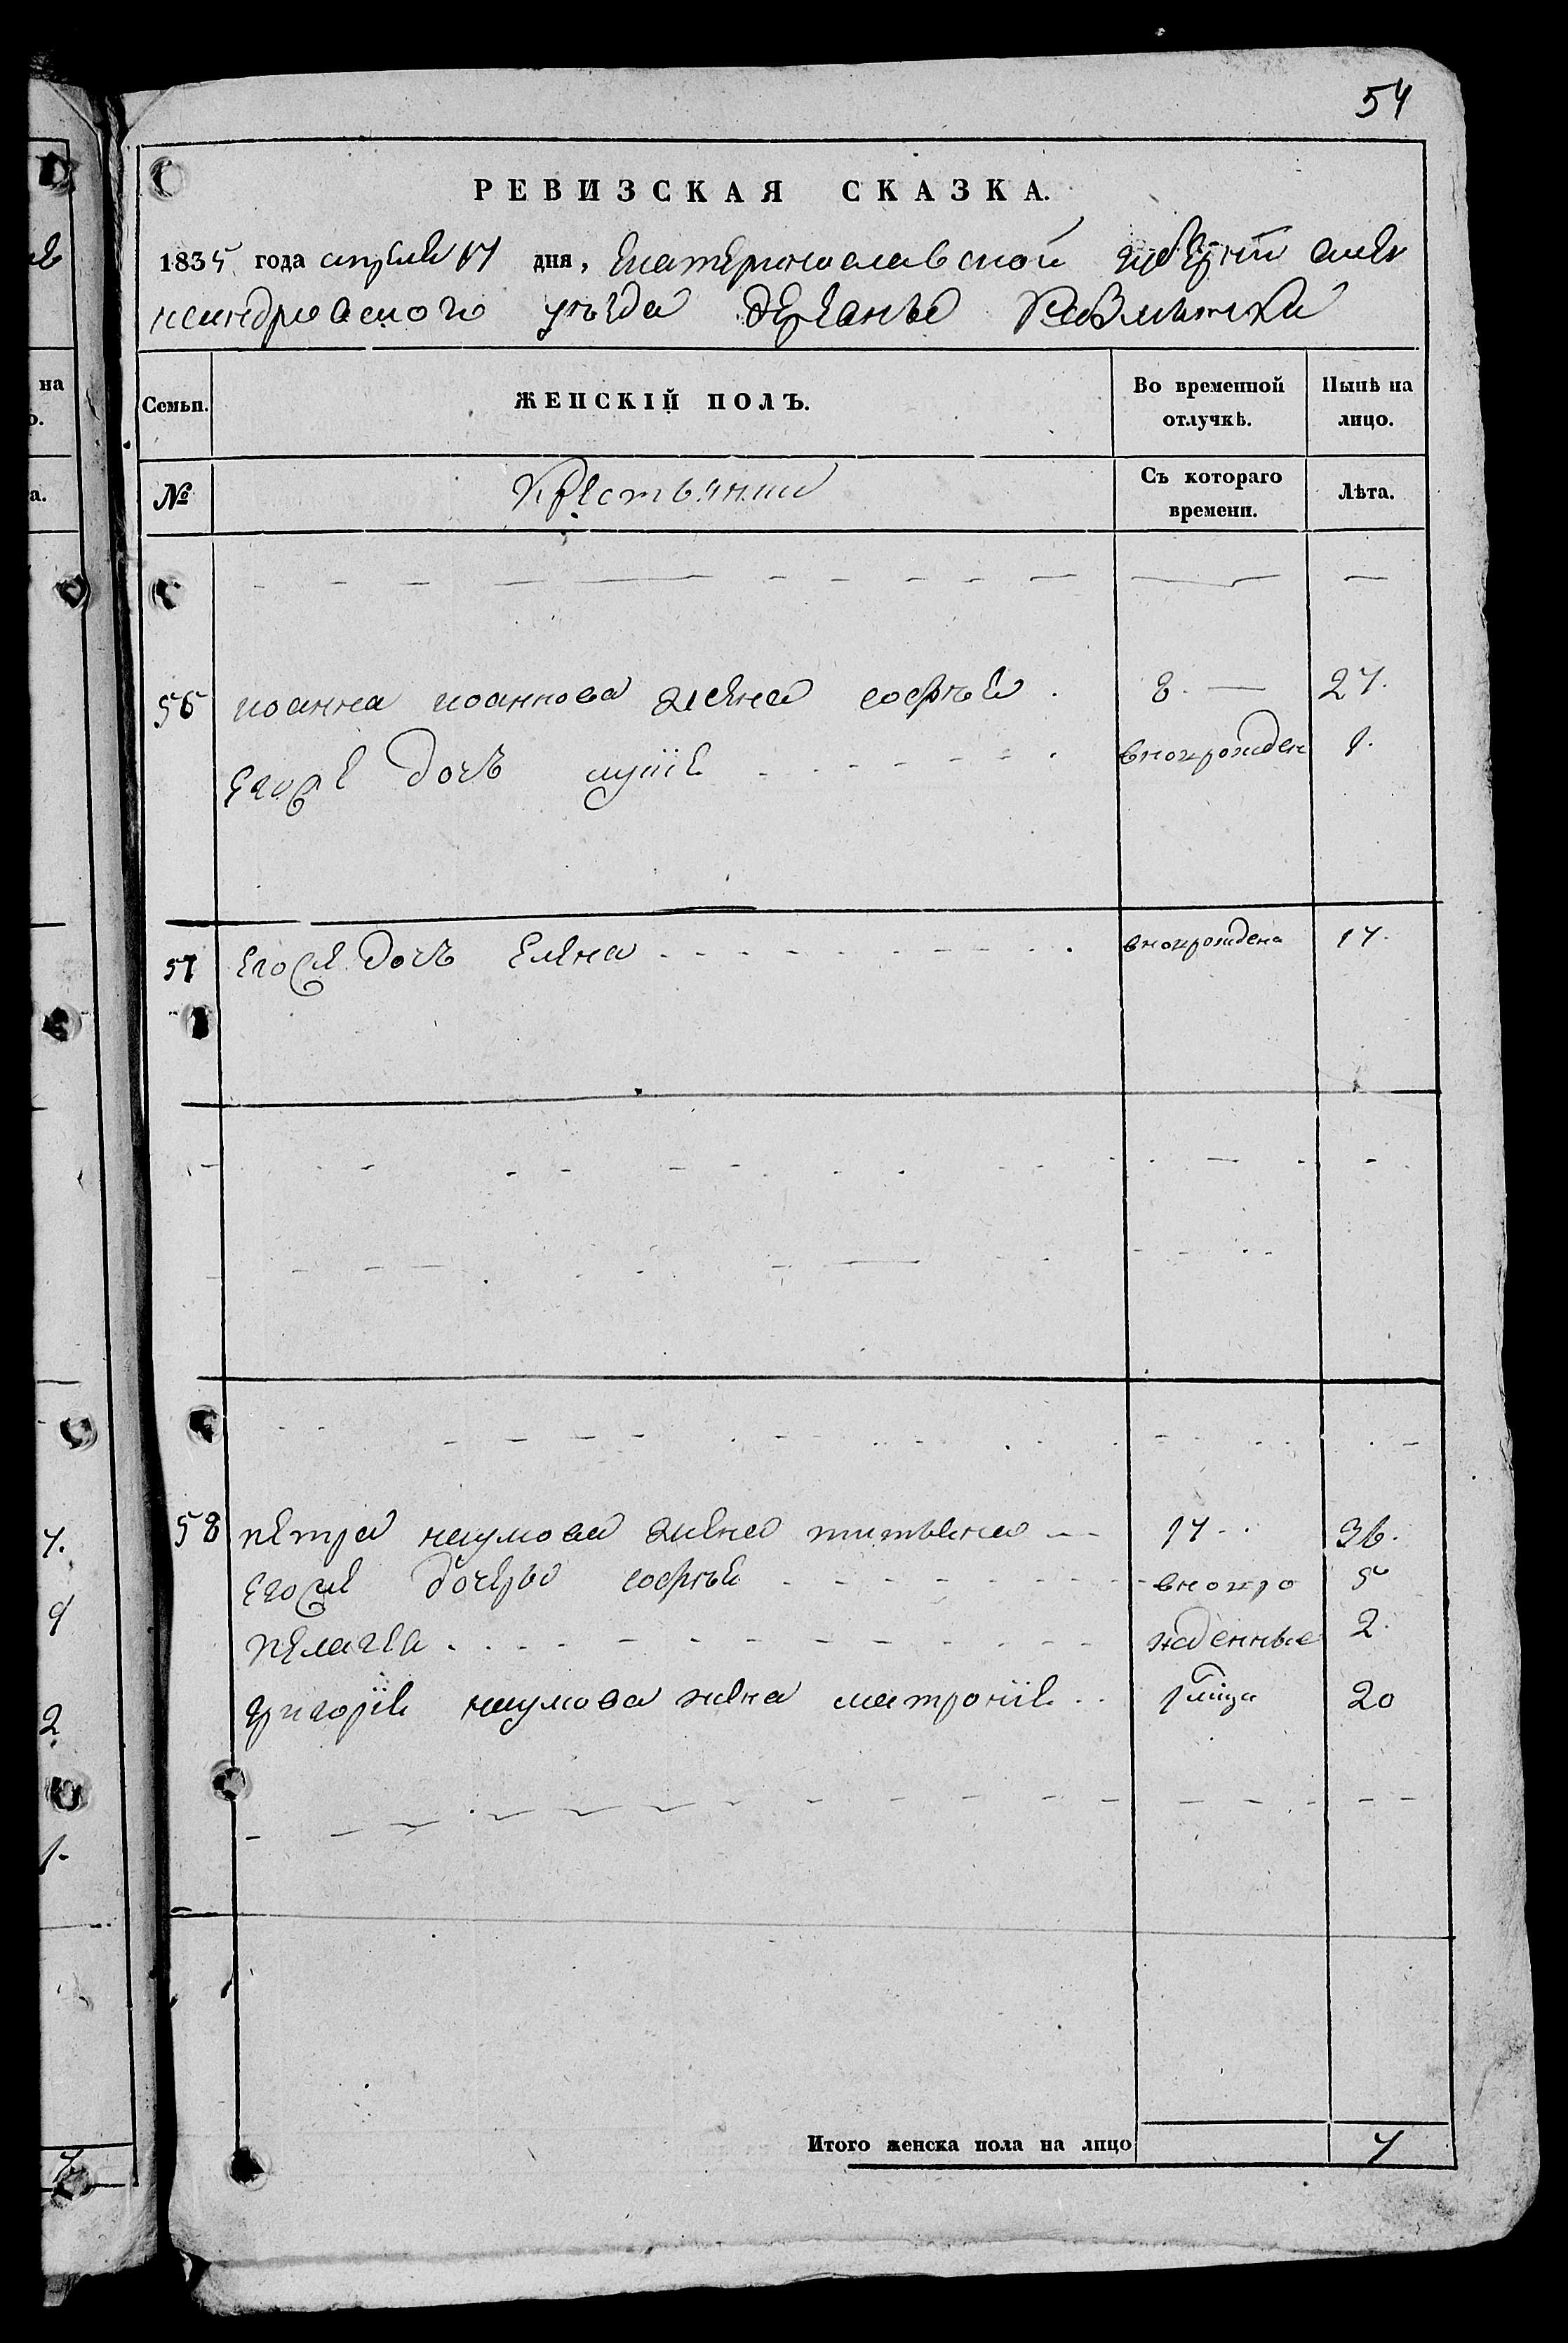 54
РЕВИЗСКАЯ СКАЗКА.
1835 года апреля 17 дня, Екатеринославской губернїи алек
сандровского уезда деревни
Семьи. ЖЕНСКІЙ ПОЛЪ. Во временной отлучкѣ. Нынѣ на лицо.
№ Крестьянки Съ котораго времени. Лѣта.
56 иоанна иоаннова жена софия 8. — 27.
Его же дочь вновьрожден 1.
57 Его же дочь Елена вновьрождена 17.
58 петра наумова жена титьяна 17 36.
его же дочерьи софия вновьро 5
пелагея жденные 2.
григорїя наумова жена матронїя 20
Итого женска пола на лицо 7
на
о.
а.
7.
9
2
1.
7